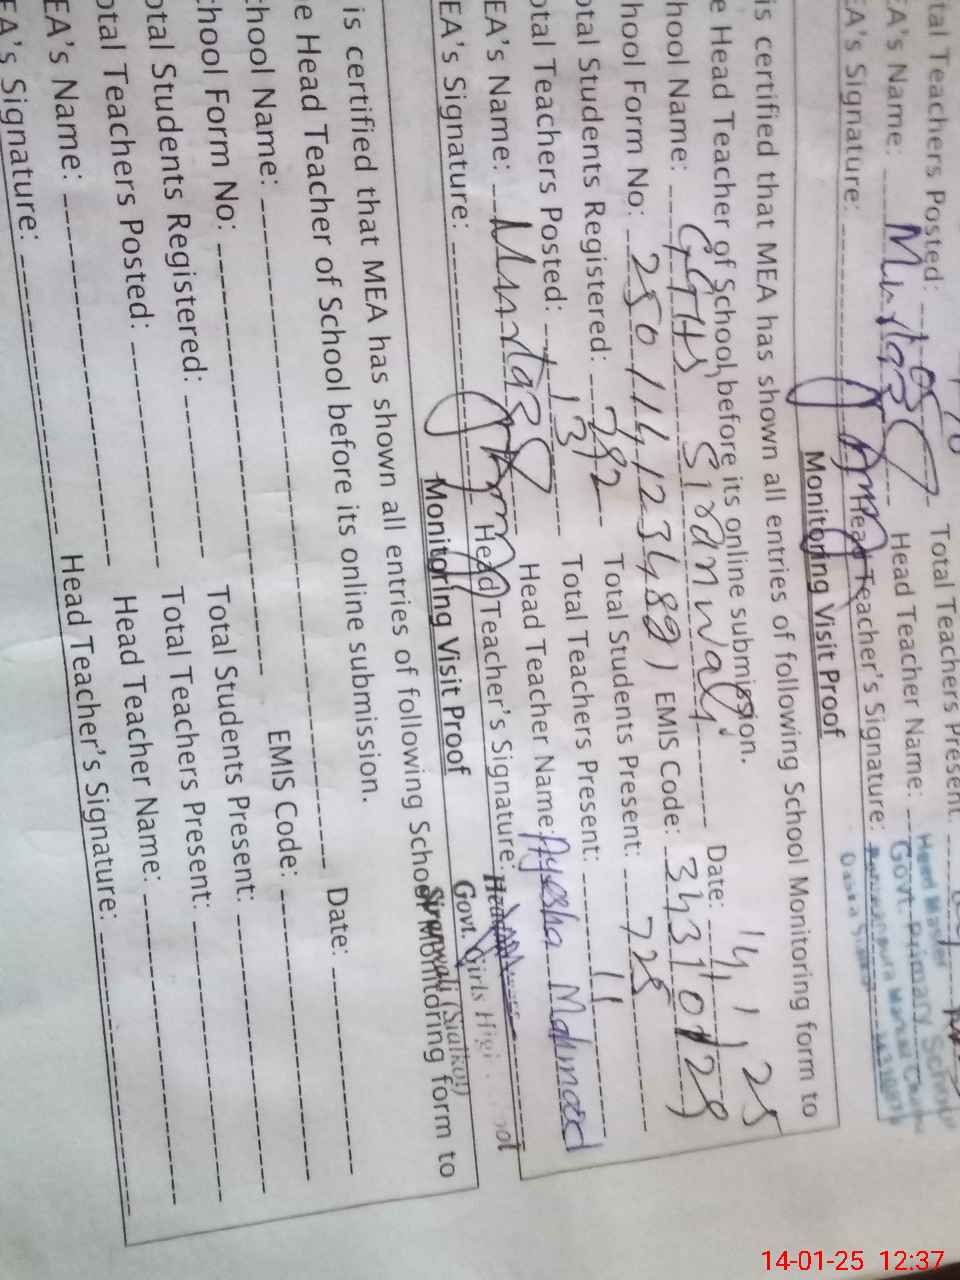 tal Teachers Posted: 05 Total Teachers Present:
EA's Name: Mumtaz Head Teacher Name:
EA's Signature: Head Teacher's Signature:
Head Master
Govt. Primary School
Daska Sialkot
Monitoring Visit Proof
is certified that MEA has shown all entries of following School Monitoring form to
e Head Teacher of School before its online submission.
hool Name: GGHS Siranwali Date: 14/1/25
hool Form No: 2501141234891 EMIS Code: 34310129
otal Students Registered: 792 Total Students Present: 725
otal Teachers Posted: 13 Total Teachers Present: 11
EA's Name: Mumtaz Head Teacher Name: Ayesha Mahmood
EA's Signature: Head Teacher's Signature:
Govt. Girls High
Siranwali (Sialkot)
Monitoring Visit Proof
is certified that MEA has shown all entries of following School Monitoring form to
e Head Teacher of School before its online submission.
hool Name: Date:
chool Form No: EMIS Code:
otal Students Registered: Total Students Present:
otal Teachers Posted: Total Teachers Present:
EA's Name: Head Teacher Name:
EA's Signature: Head Teacher's Signature:
14-01-25 12:37